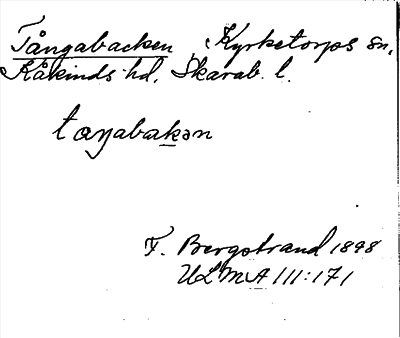 Tångabacken Kyrketorps sn,
Kåkinds hd, Skarab. l.
taŋabakən
F. Bergstrand 1898
ULMA 111:171